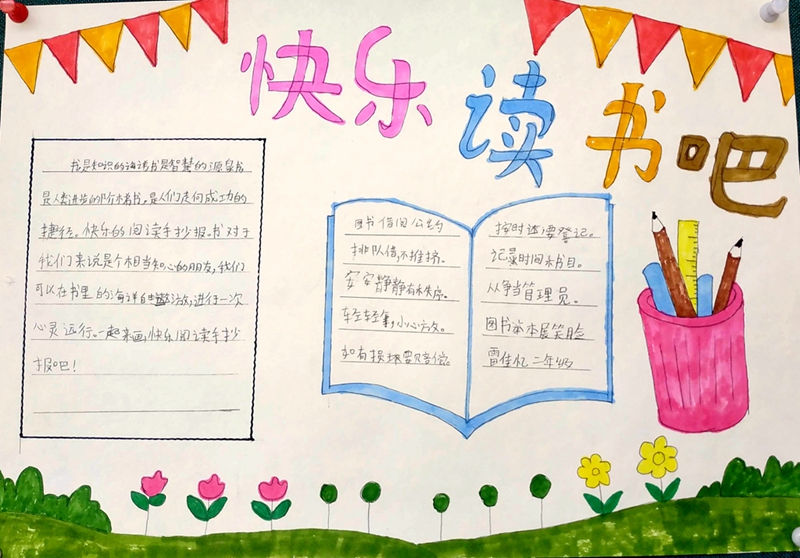 快乐读书吧
书是知识的海洋书是智慧的源泉书
是人类进步的阶梯书,是人们走向成功的
捷径。快乐的阅读手抄报。书对于
我们来说是个相当知心的朋友,我们
可以在书里的海洋自遨游,进行一次
心灵远行。一起来画快乐阅读手抄
报吧!
图书借阅公约
排队借,不推挤。
安安静静有秩序。
轻轻拿,小心放。
如有损坏要赔偿。
按时还要登记。
记录时间和书目。
争当管理员。
图书本本展笑脸
雷佳忆 二年级